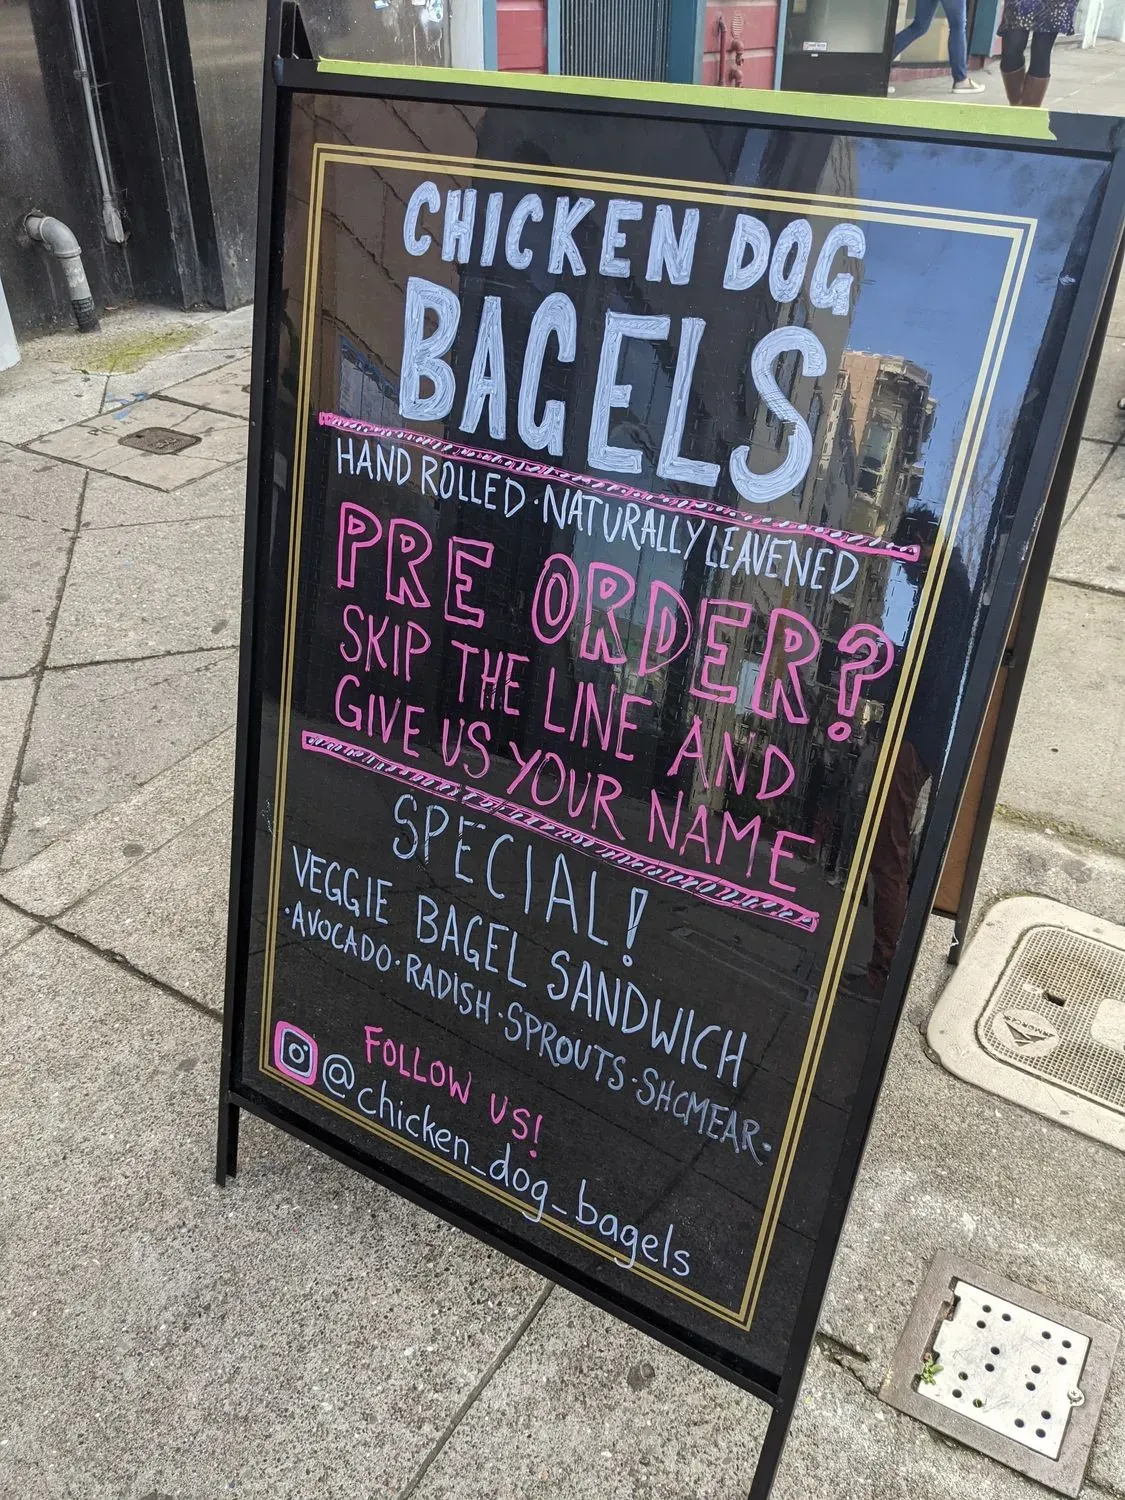 CHICKEN DOG
BAGELS
HAND ROLLED · NATURALLY LEAVENED
PRE ORDER?
SKIP THE LINE AND
GIVE US YOUR NAME
SPECIAL!
VEGGIE BAGEL SANDWICH
·AVOCADO·RADISH·SPROUTS·SHCMEAR·
FOLLOW US!
@chicken_dog_bagels